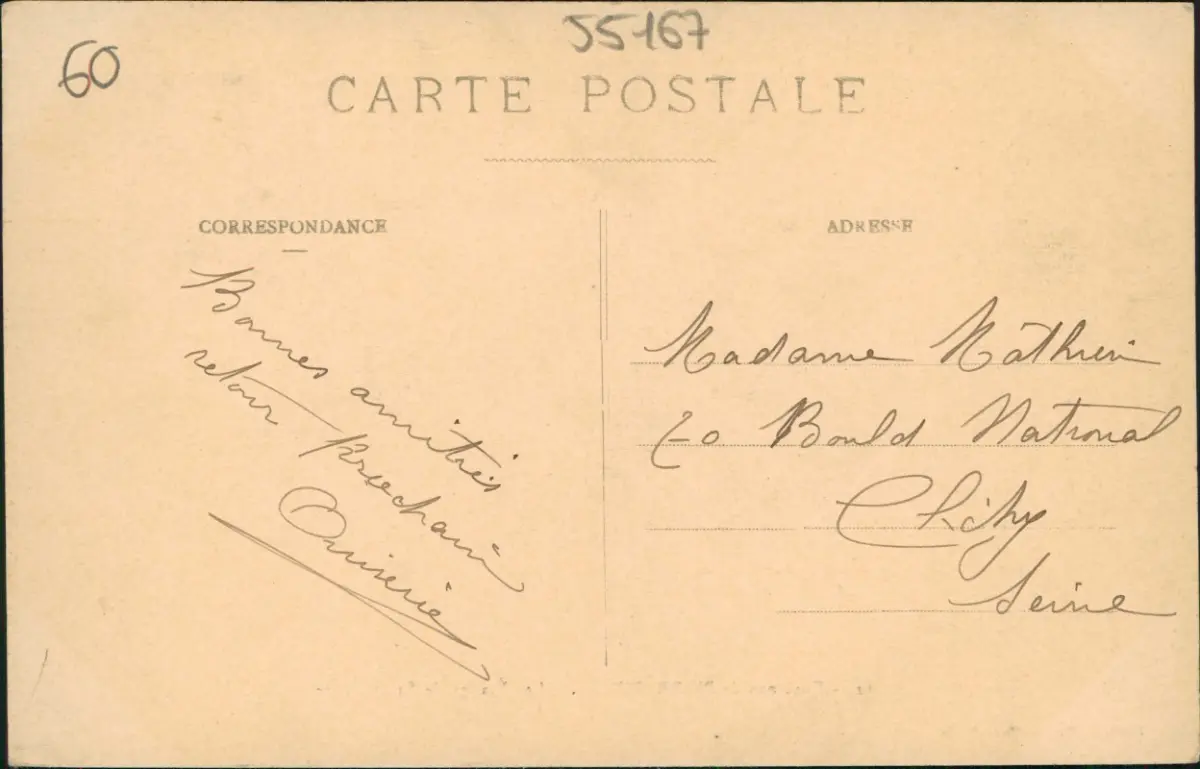 60
55167
CARTE POSTALE
CORRESPONDANCE
Bonnes amitiés
retour prochain
ADRESSE
Madame
20 Bould National
Clichy
Seine